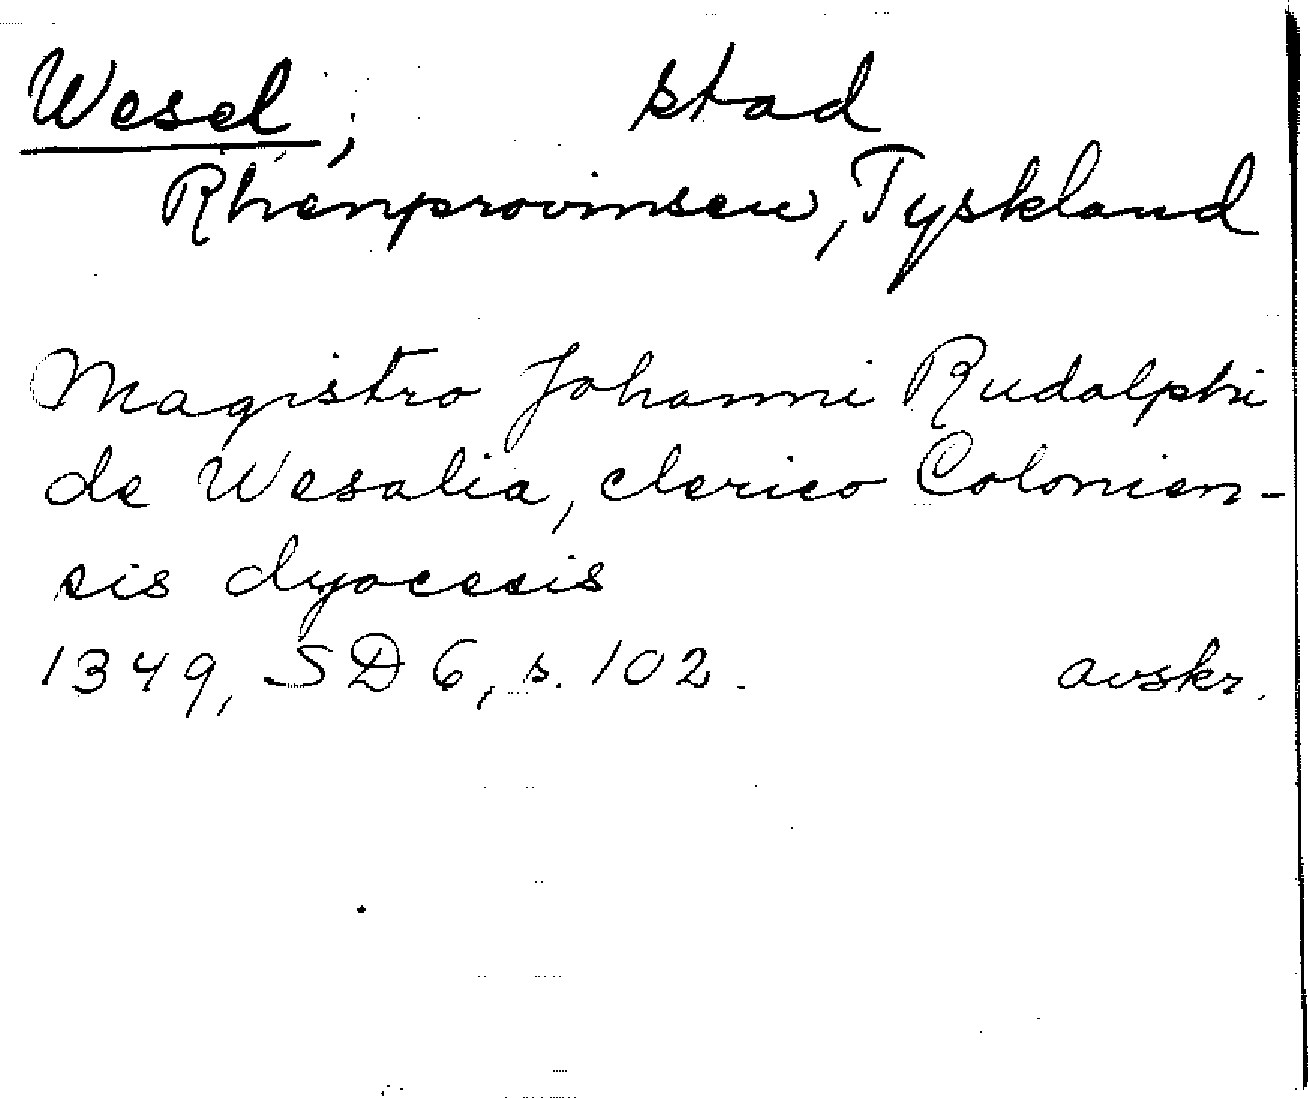 Wesel; stad
Rhenprovinsen, Tyskland
Magistro Johanni Rudolphi
de Wesalia, clerico Colonien-
sis dyocesis
1349, SD 6, s. 102. avskr.